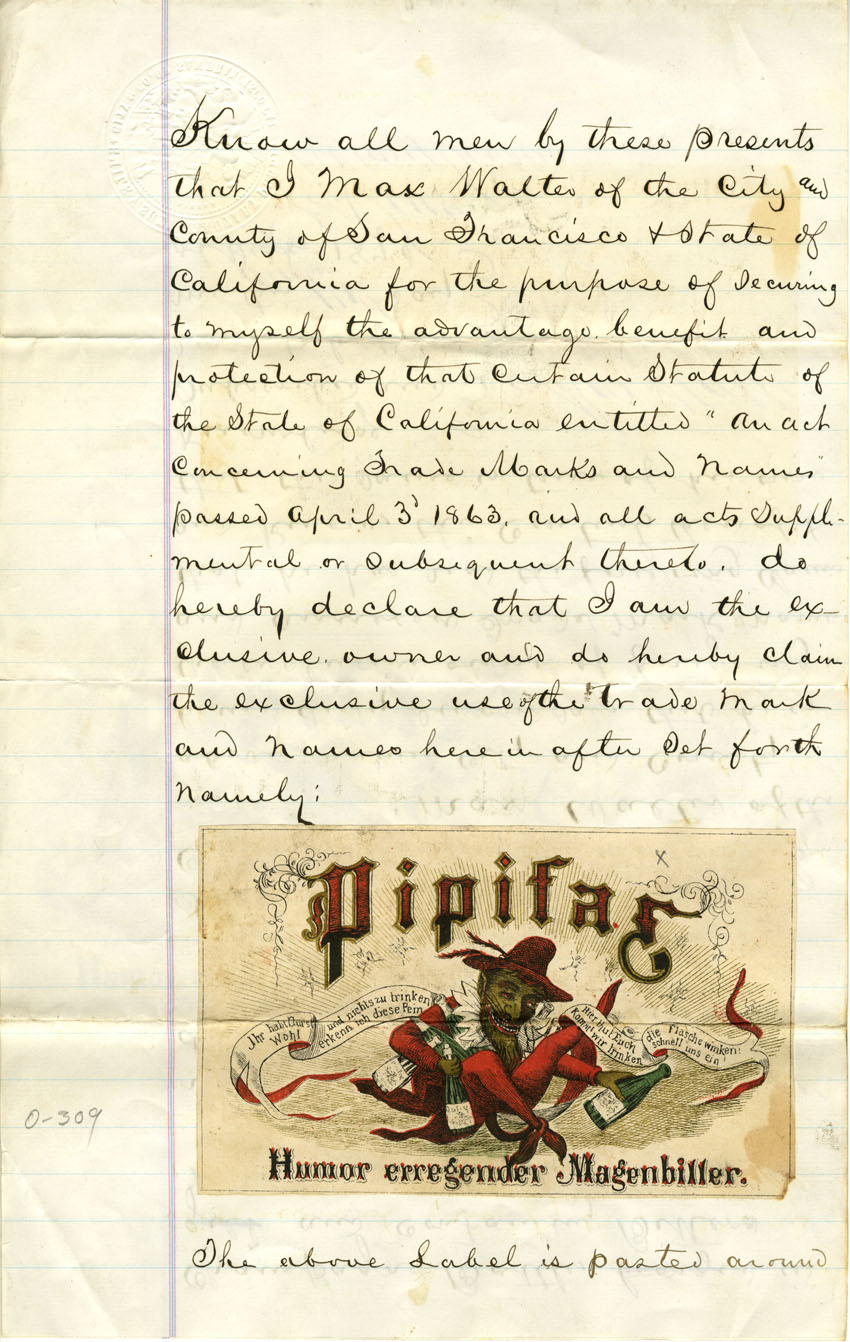 Know all men by these presents
that I Max Walter of the City and
County of San Francisco & State of
California for the purpose of securing
to myself the advantage benefit and
protection of that certain Statute of
the State of California entitled "An act
Concerning Trade Marks and Names"
passed April 3d 1863, and all acts Suppli-
mental or subsequent thereto, do
hereby declare that I am the ex-
clusive owner and do hereby claim
the exclusive use of the trade mark
and names herein after Set forth
Namely:
x
Pipifax
Ihr habt Durst
Wohl
und nichts zu trinken
erkenn ich diese Pein
Hier thut Euch
Kommt wir trinken
die Flasche winken!
schnell uns ein!
Humor erregender Magenbitter.
0-309
The above Label is pasted around